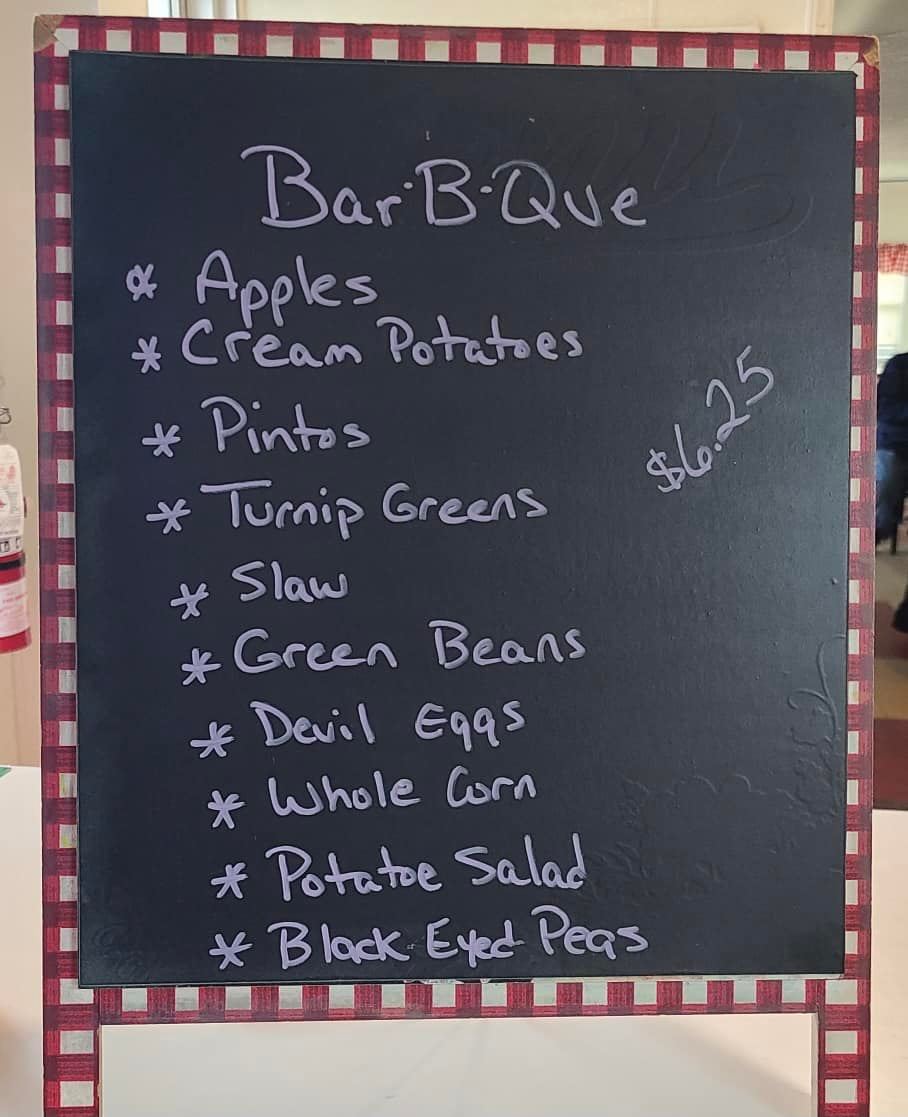 Bar-B-Que
* Apples
* Cream Potatoes
* Pintos
$6.25
* Turnip Greens
* Slaw
* Green Beans
* Devil Eggs
* Whole Corn
* Potatoe Salad
* Black Eyed Peas